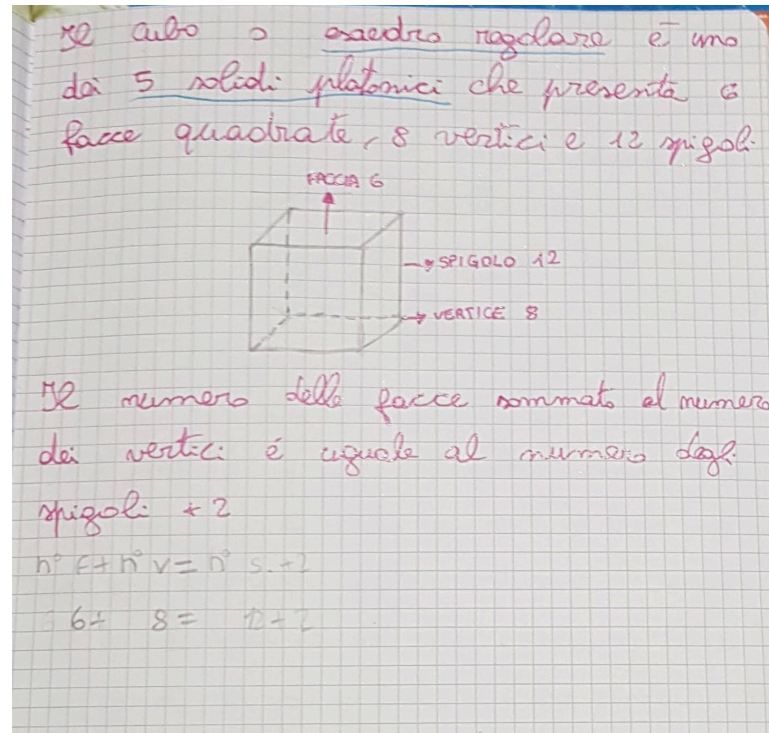 Il cubo o esaedro regolare è uno
dei 5 solidi platonici che presenta 6
facce quadrate, 8 vertici e 12 spigoli.
FACCIA 6
SPIGOLO 12
VERTICE 8
Il numero delle facce sommato al numero
dei vertici é uguale al numero degli
spigoli + 2
n° F + n° V = n° S. + 2
6 + 8 = 12 + 2